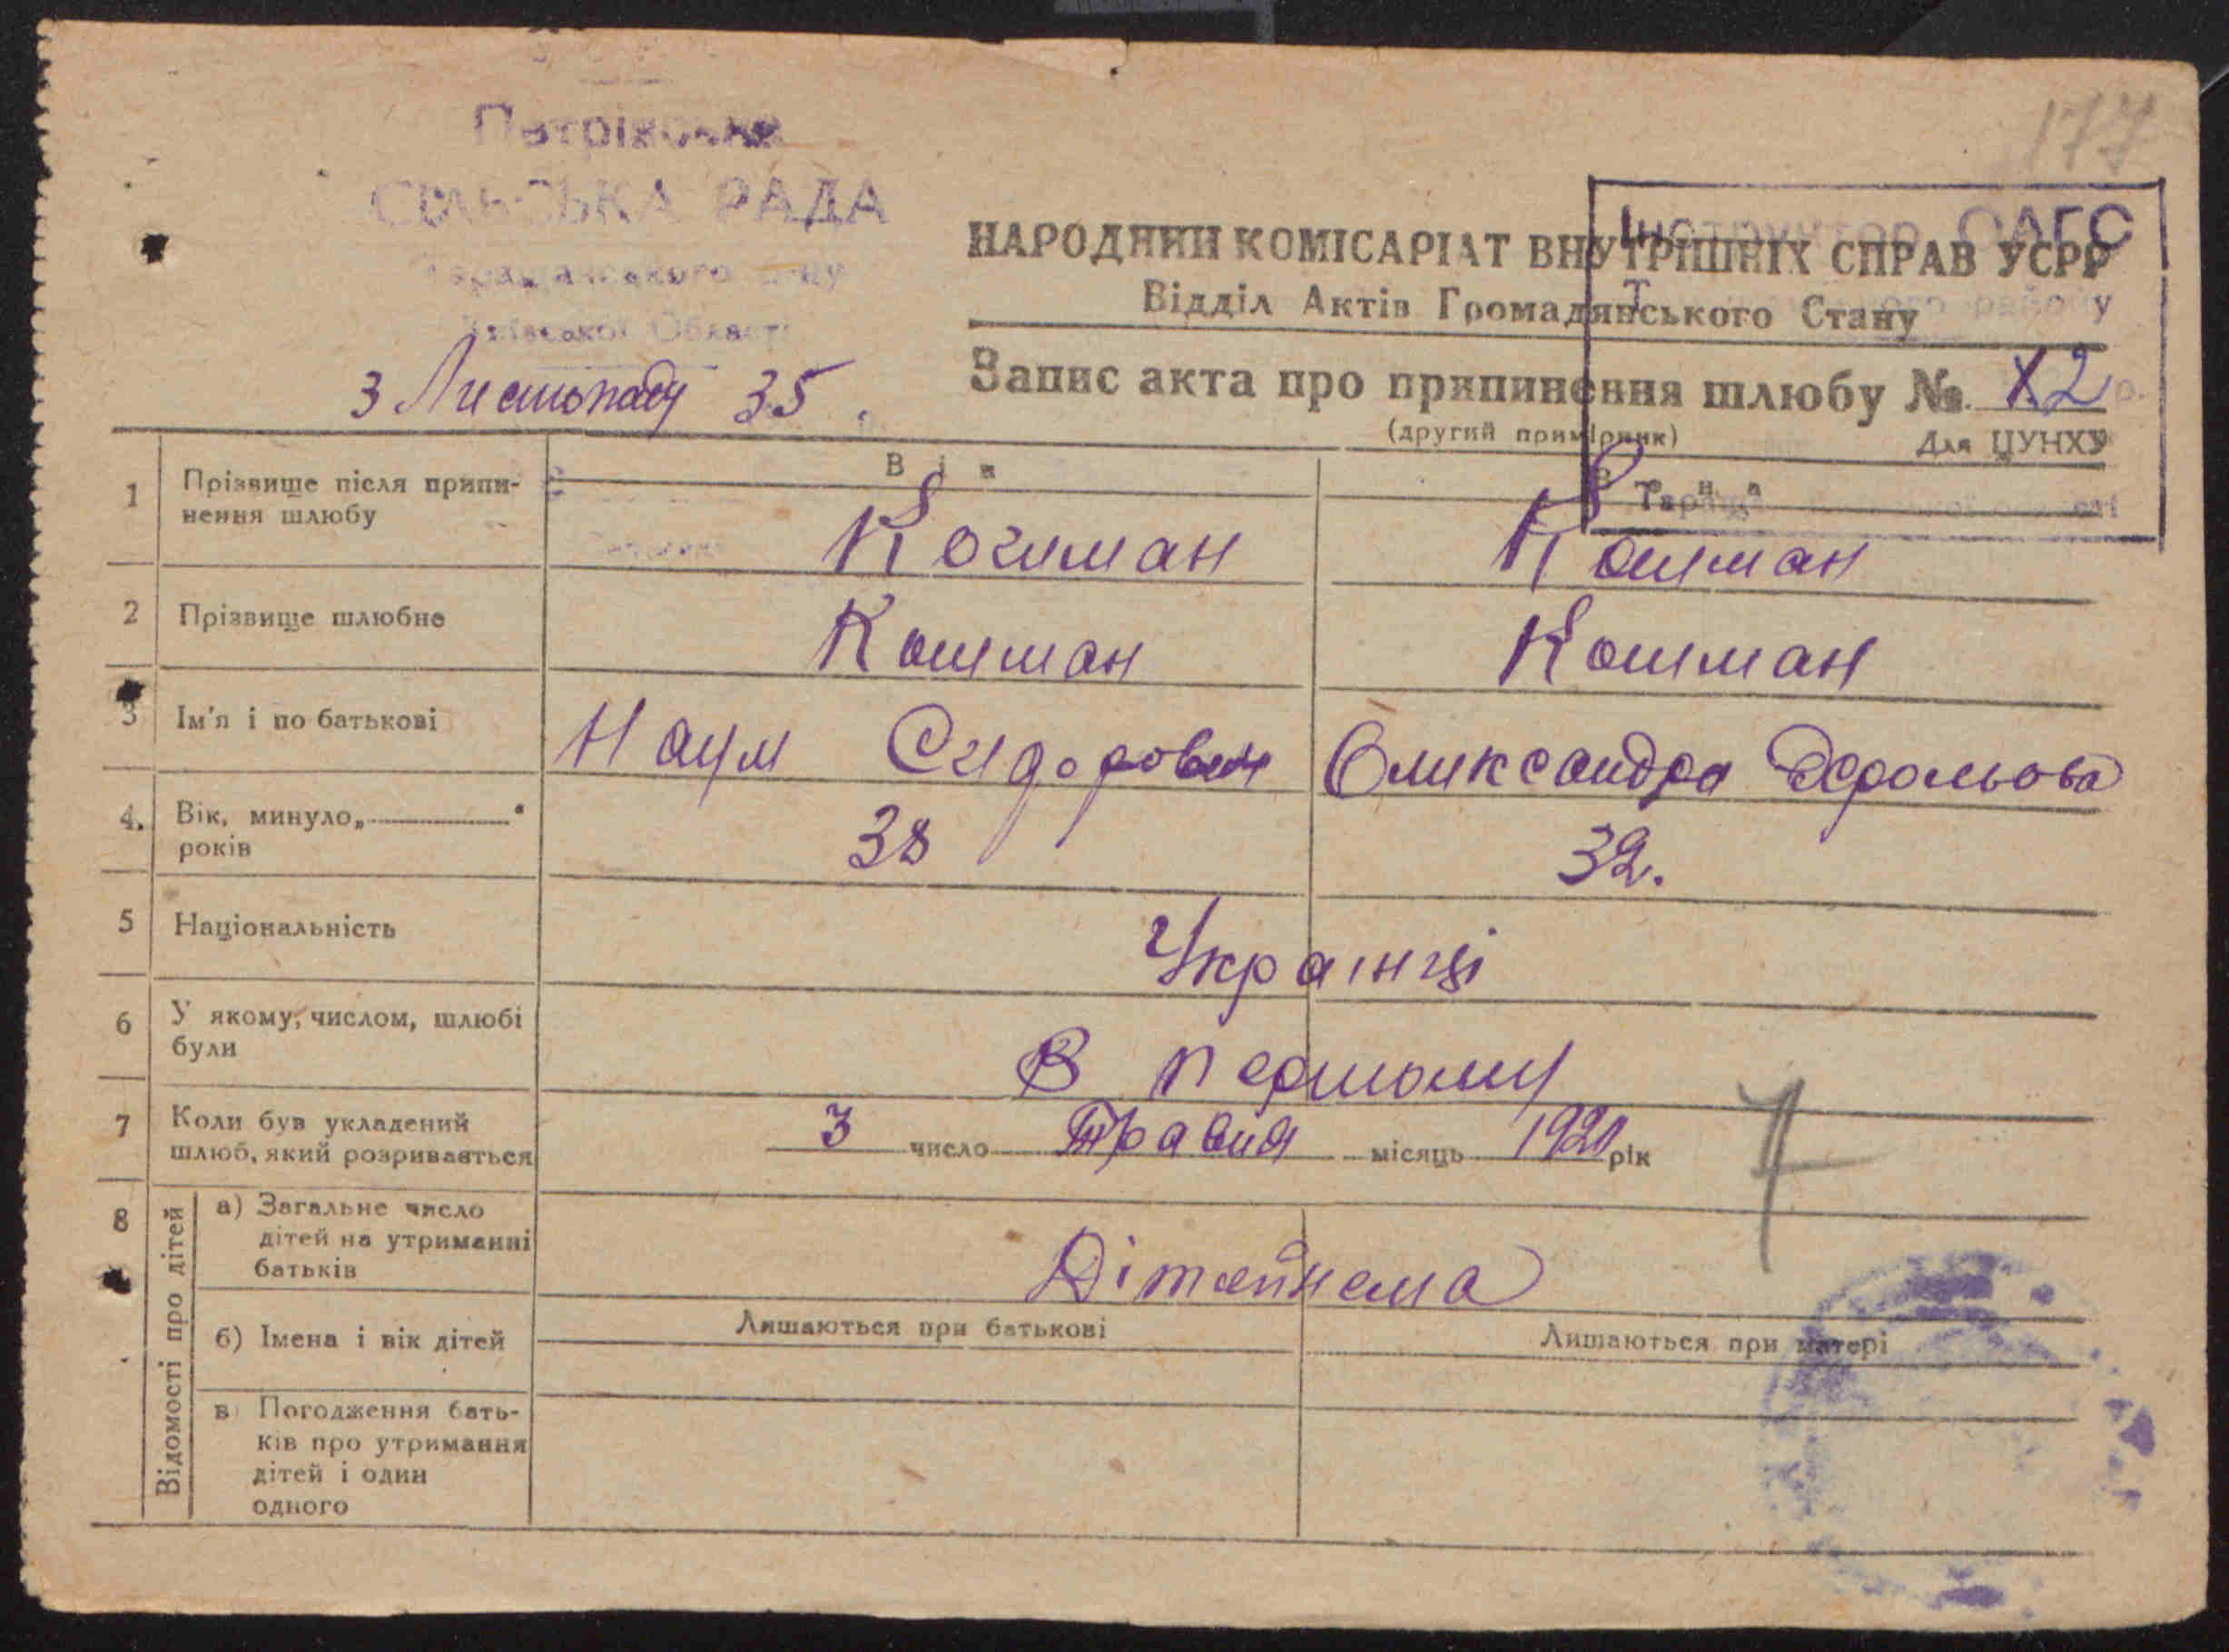 177
Петрівська
СІЛЬСЬКА РАДА
Таращанського р-ну
Київської Області
3 Листопаду 35
Інструктор ОАГС
НАРОДНИЙ КОМІСАРІАТ ВНУТРІШНІХ СПРАВ УСРР
Відділ Актів Громадянського Стану
району
Запис акта про припинення шлюбу № 12
(другий примірник) Для ЦУНХУ
Він Вона
1 Прізвище після припи-
нення шлюбу
Кошман Кошман
2 Прізвище шлюбне Кошман Кошман
3 Ім'я і по батькові Наум Сидорович Олександра
4. Вік, минуло „ “
років
38 32.
5 Національність Українці
6 У якому, числом, шлюбі
були
В першому
7 Коли був укладений
шлюб, який розривається
3 число Травня місяць 1921 рік
7
8 Відомості про дітей
а) Загальне число
дітей на утриманні
батьків
Дітей нема
б) Імена і вік дітей
Лишаються при батькові Лишаються при матері
в) Погодження бать-
ків про утримання
дітей і один
одного